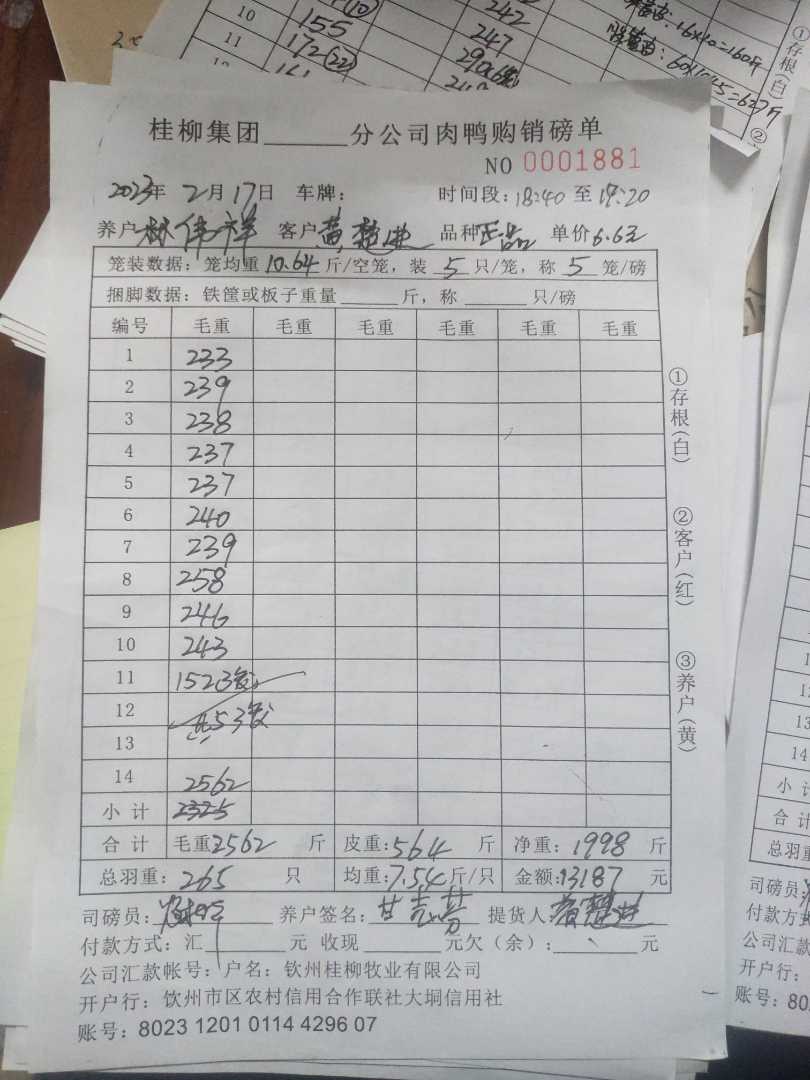 10 155 (10) 242
11 172 (22) 247
桂柳集团______分公司肉鸭购销磅单
NO 0001881
2023年 2月17日 车牌: 时间段: 18:40 至 19:20
养户 林伟祥 客户 黄楚进 品种 正品 单价 6.6元
笼装数据: 笼均重 10.64 斤/空笼, 装 5 只/笼, 称 5 笼/磅
捆脚数据: 铁筐或板子重量______斤, 称______只/磅
编号 毛重 毛重 毛重 毛重 毛重 毛重
1 233
2 239
3 238
4 237
5 237
6 240
7 239
8 258
9 246
10 243
11 152 3笼
12 共53笼
13
14 2562
小计 2325
合计 毛重:2562 斤 皮重:564 斤 净重: 1998 斤
总羽重: 265 只 均重:7.54斤/只 金额:13187 元
司磅员: 养户签名: 提货人: 黄楚进
付款方式: 汇______元 收现______元欠(余):______元
公司汇款帐号: 户名: 钦州桂柳牧业有限公司
开户行: 饮州市区农村信用合作联社大垌信用社
账号: 8023 1201 0114 4296 07
①存根(白) ②客户(红) ③养户(黄)
①存根(白)
②
14
小计
合计
总羽重
司磅员:
付款方式
公司汇款
开户行:
账号: 80